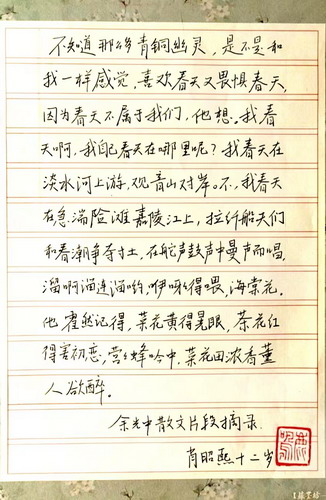 不知道那个青铜幽灵，是不是和
我一样感觉，喜欢春天又畏惧春天，
因为春天不属于我们，他想。我春
天啊，我自己春天在哪里呢？我春天在
淡水河上游，观音山对岸。不，我春天
在急湍险滩嘉陵江上，拉纤船夫们
和春潮争夺寸土，在舵声鼓声中曼声而唱，
溜啊溜连溜哟，咿呀得喂，海棠花。
他霍然记得，菜花黄得晃眼，茶花红
得害初恋，营营蜂吟中，菜花田浓香薰
人欲醉。
余光中散文片段摘录
肖昭熙十二岁